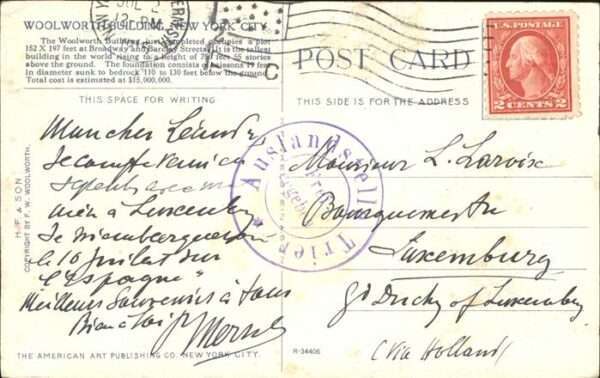 WOOLWORTH BUILDING, NEW YORK CITY.
The Woolworth Building when completed occupies a plot
152 X 197 feet at Broadway and Barclay Streets. It is the tallest
building in the world rising to a height of 750 feet 55 stories
above the ground. The foundation consists of caissons 19 feet
in diameter sunk to bedrock 110 to 130 feet below the ground.
Total cost is estimated at $15,000,000.
THIS SPACE FOR WRITING
Mon cher Léandre,
Je compte venir
à Luxembourg
Je m'embarquerai
le 10 juillet sur
"l'Espagne"
Meilleurs souvenirs à tous
Bien à toi
H. F. & SON
COPYRIGHT BY F. W. WOOLWORTH.
THE AMERICAN ART PUBLISHING CO. NEW YORK CITY.
R-34406
POST CARD
THIS SIDE IS FOR THE ADDRESS
U.S. POSTAGE
2 CENTS 2
C
Auslandsstelle
Trier
Monsieur L. Larvix
Bourgmestre
Luxemburg
Gd Duchy of Luxemburg
(via Holland)